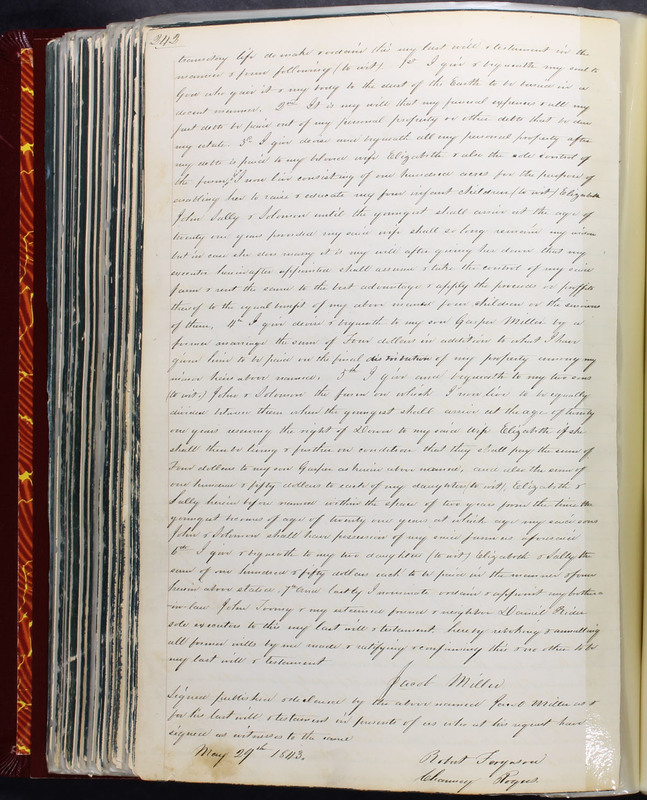 242
transitory life do make & ordain this my last will & testament in the
manner & form following (to wit) 1st I give & bequeath my soul to
God who gave it & my body to the dust of the Earth to be buried in a
decent manner. 2nd It is my will that my funeral expenses & all my
just debts be paid out of my personal property or other debts that be due
my estate. 3rd I give devise and bequeath all my personal property after
my debts is paid to my beloved wife Elizabeth & also the sole control of
the farm I now live consisting of one hundred acres for the purpose of
enabling her to raise & educate my four infant children (to wit) Elizabeth
John Sally & Solomon until the youngest shall arrive at the age of
twenty one years provided my said wife shall so long remain my widow
but in case she does marry it is my will after giving her dower that my
executor herein after appointed shall assume & take the control of my said
farm & rent the same to the best advantage & apply the proceeds or proffits
thereof to the equal benefit of my above named four children or the survivors
of them, 4th I give devise & bequeath to my son Gasper Miller by a
former marriage the sum of Four dollars in addition to what I have
given him to be paid on the final distribution of my property among my
minor heirs above named. 5th I give and bequeath to my two sons
(to wit.) John & Solomon the farm on which I now live to be equally
divided between them when the youngest shall arrive at the age of twenty
one years reserving the right of Dower to my said wife Elizabeth if she
shall then be living & further on condition that they shall pay the sum of
Four dollars to my son Gasper as herein above named, and also the sum of
one hundred & fifty dollars to each of my daughters (to wit), Elizabeth &
Sally herein before named within the space of two years from the time the
youngest becomes of age of twenty one years, at which age my said sons
John & Solomon shall have possession of my said farm as aforesaid
6th I give & bequeath to my two daughters (to wit) Elizabeth & Sally the
sum of one hundred & fifty dollars each to be paid in the manner & form
herein above stated. 7th And lastly I nominate ordain & appoint my brother
-in-law John Tovny & my esteemed friend & neighbor Daniel Rider
sole executors to this my last will & testament. hereby revoking & annulling
all former wills by me made & ratifying & confirming this & no other to be
my last will & testament
Jacob Miller
Signed published & declared by the above named Jacob Miller as &
for his last will & testament in presents of us who at his request have
signed as witnesses to the same
May 29th 1843.
Robert Ferguson
Chauncy Rogers